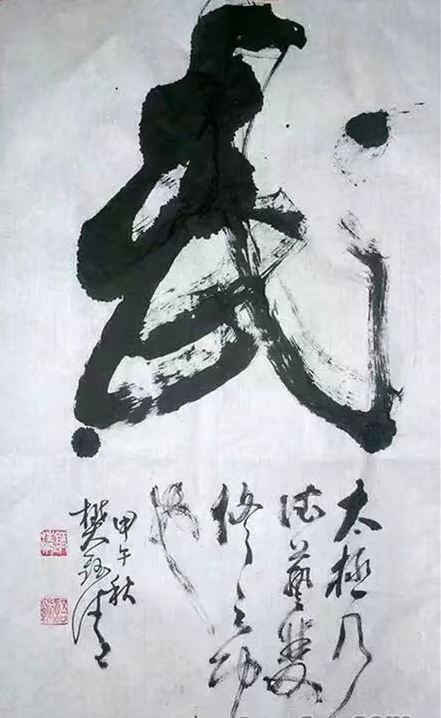 武
太極乃
德藝雙
修之功
也
甲午秋
樊